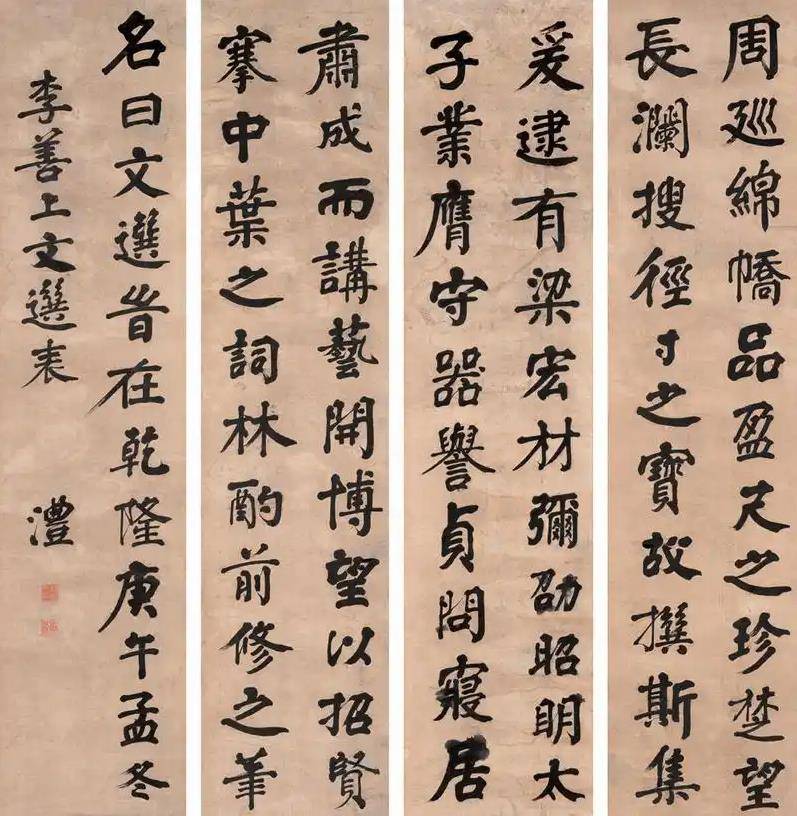 周廵綿嶠品盈尺之珍楚望
長瀾搜徑寸之寶故撰斯集
爰逮有梁宏材彌劭昭明太
子業膺守器譽貞問寢居
肅成而講藝開博望以招賢
搴中葉之詞林酌前修之筆
名曰文選旹在乾隆庚午孟冬
李善上文選表
澧